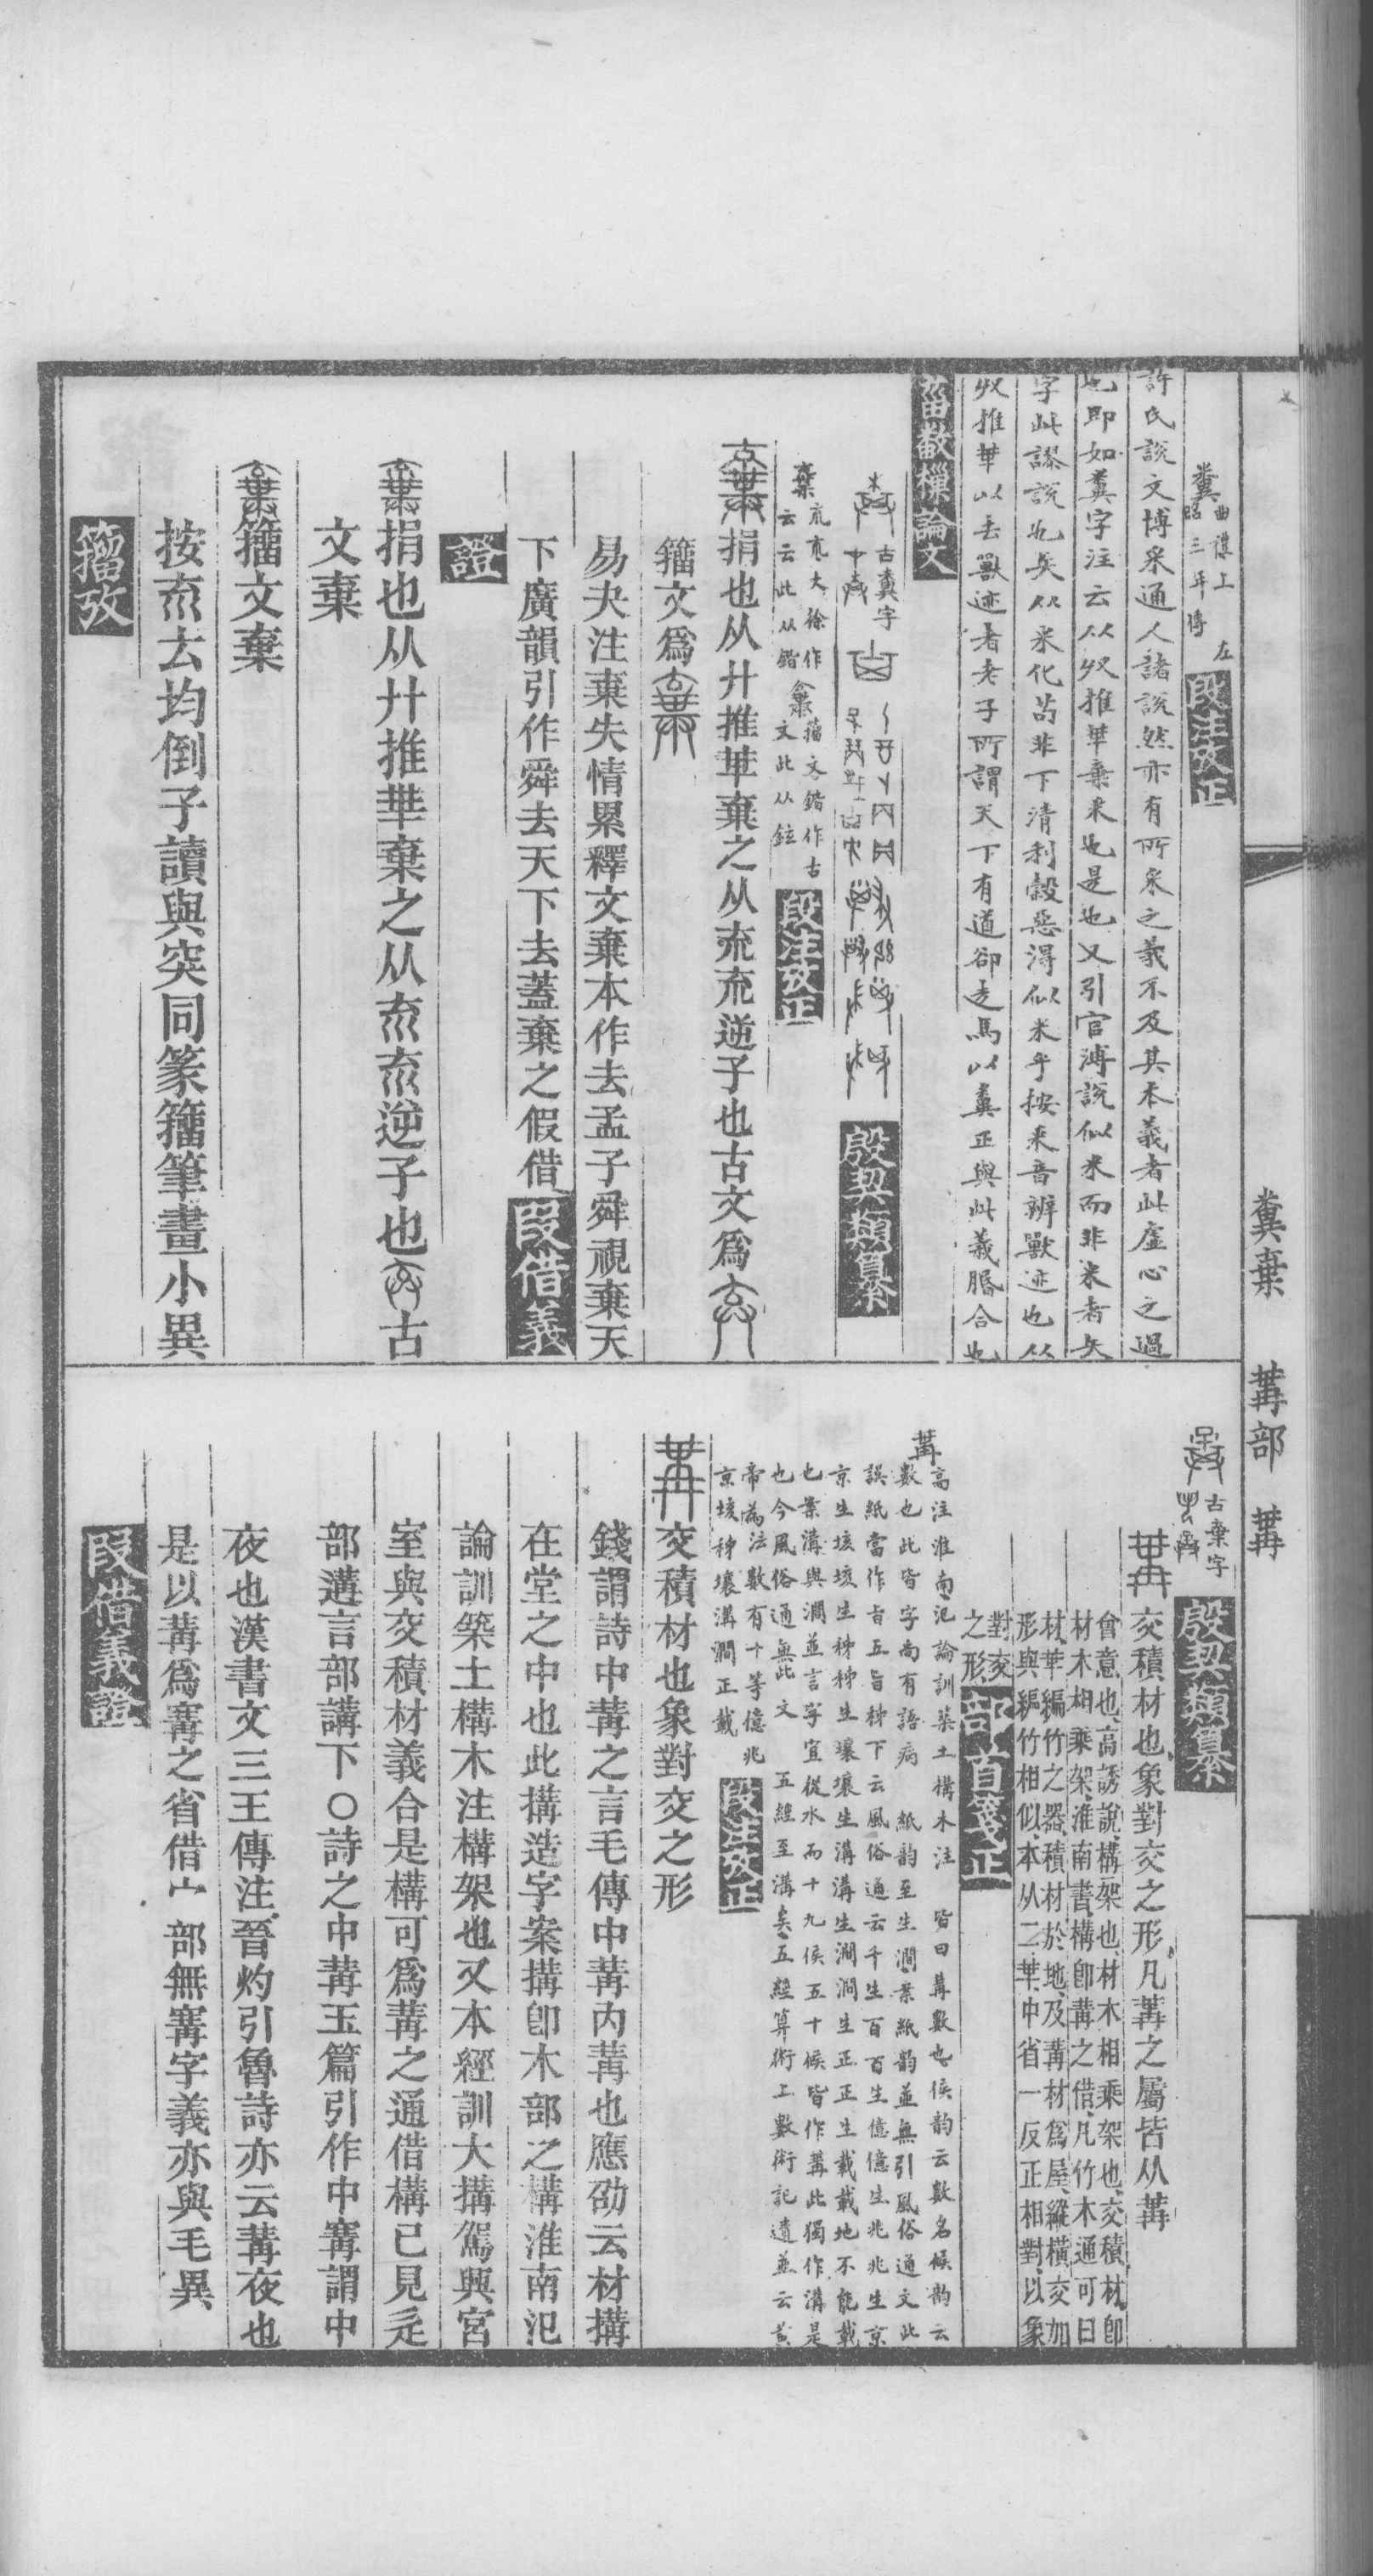 糞棄　冓部　冓
糞
曲禮上　左
昭三年傳
段注攷正
許氏說文博采通人諸說然亦有所采之義不及其本義者此虛心之過
也卽如糞字注云从𠬞推𠦒棄釆也是也又引官溥說似米而非米者矢
字此謬說也矢从米化苗非下清利穀惡得似米乎按釆音辨獸迹也从
𠬞推𠦒以去獸迹者老子所謂天下有道卻走馬以糞正與此義脗合也
菑畝欙論文
古糞字
殷契類纂
棄
㐬㐬大徐作
云云此从鍇
籀文鍇作古
文此从鉉
段注攷正
捐也从廾推𠦒棄之从㐬㐬逆子也古文爲
籀文爲
易夬注棄失情累釋文棄本作去孟子舜視棄天
下廣韻引作舜去天下去蓋棄之假借
叚借義
證
捐也从廾推𠦒棄之从𠫓𠫓逆子也古
文棄
籀文棄
按𠫓𠫓均倒子讀與突同篆籀筆畫小異
籀攷
古棄字
殷契類纂
交積材也象對交之形凡冓之屬皆从冓
會意也高誘說構架也材木相乘架也交積材卽
材木相乘架淮南書構卽冓之借凡竹木通可曰
材𠦒編竹之器積材於地及冓材爲屋縱橫交加
形與編竹相似本从二𠦒中省一反正相對以象
對交
之形
部首箋正
冓
高注淮南氾論訓築土構木注　皆曰冓數也侯韵云數名候韵云
數也此皆字尚有語病　紙韵至生澗業紙韵並無引風俗通文此
誤紙當作旨五旨秭下云風俗通云千生百百生億億生兆兆生京
京生垓垓生秭秭生壤壤生溝溝生澗澗生正正生載載地不能載
也業溝與澗並言字宜從水而十九侯五十候皆作冓此獨作溝是
也今風俗通無此文　五經至溝矣五經算術上數術記遺並云黃
帝為法數有十等億兆
京垓秭壤溝澗正載
段注攷正
交積材也象對交之形
錢謂詩中冓之言毛傳中冓內冓也應劭云材搆
在堂之中也此搆造字案搆卽木部之構淮南氾
論訓築土構木注構架也又本經訓大搆駕興宮
室與交積材義合是構可爲冓之通借構已見辵
部遘言部講下○詩之中冓玉篇引作中𡨄謂中
夜也漢書文三王傳注晉灼引魯詩亦云冓夜也
是以冓爲𡨄之省借宀部無𡨄字義亦與毛異
叚借義證